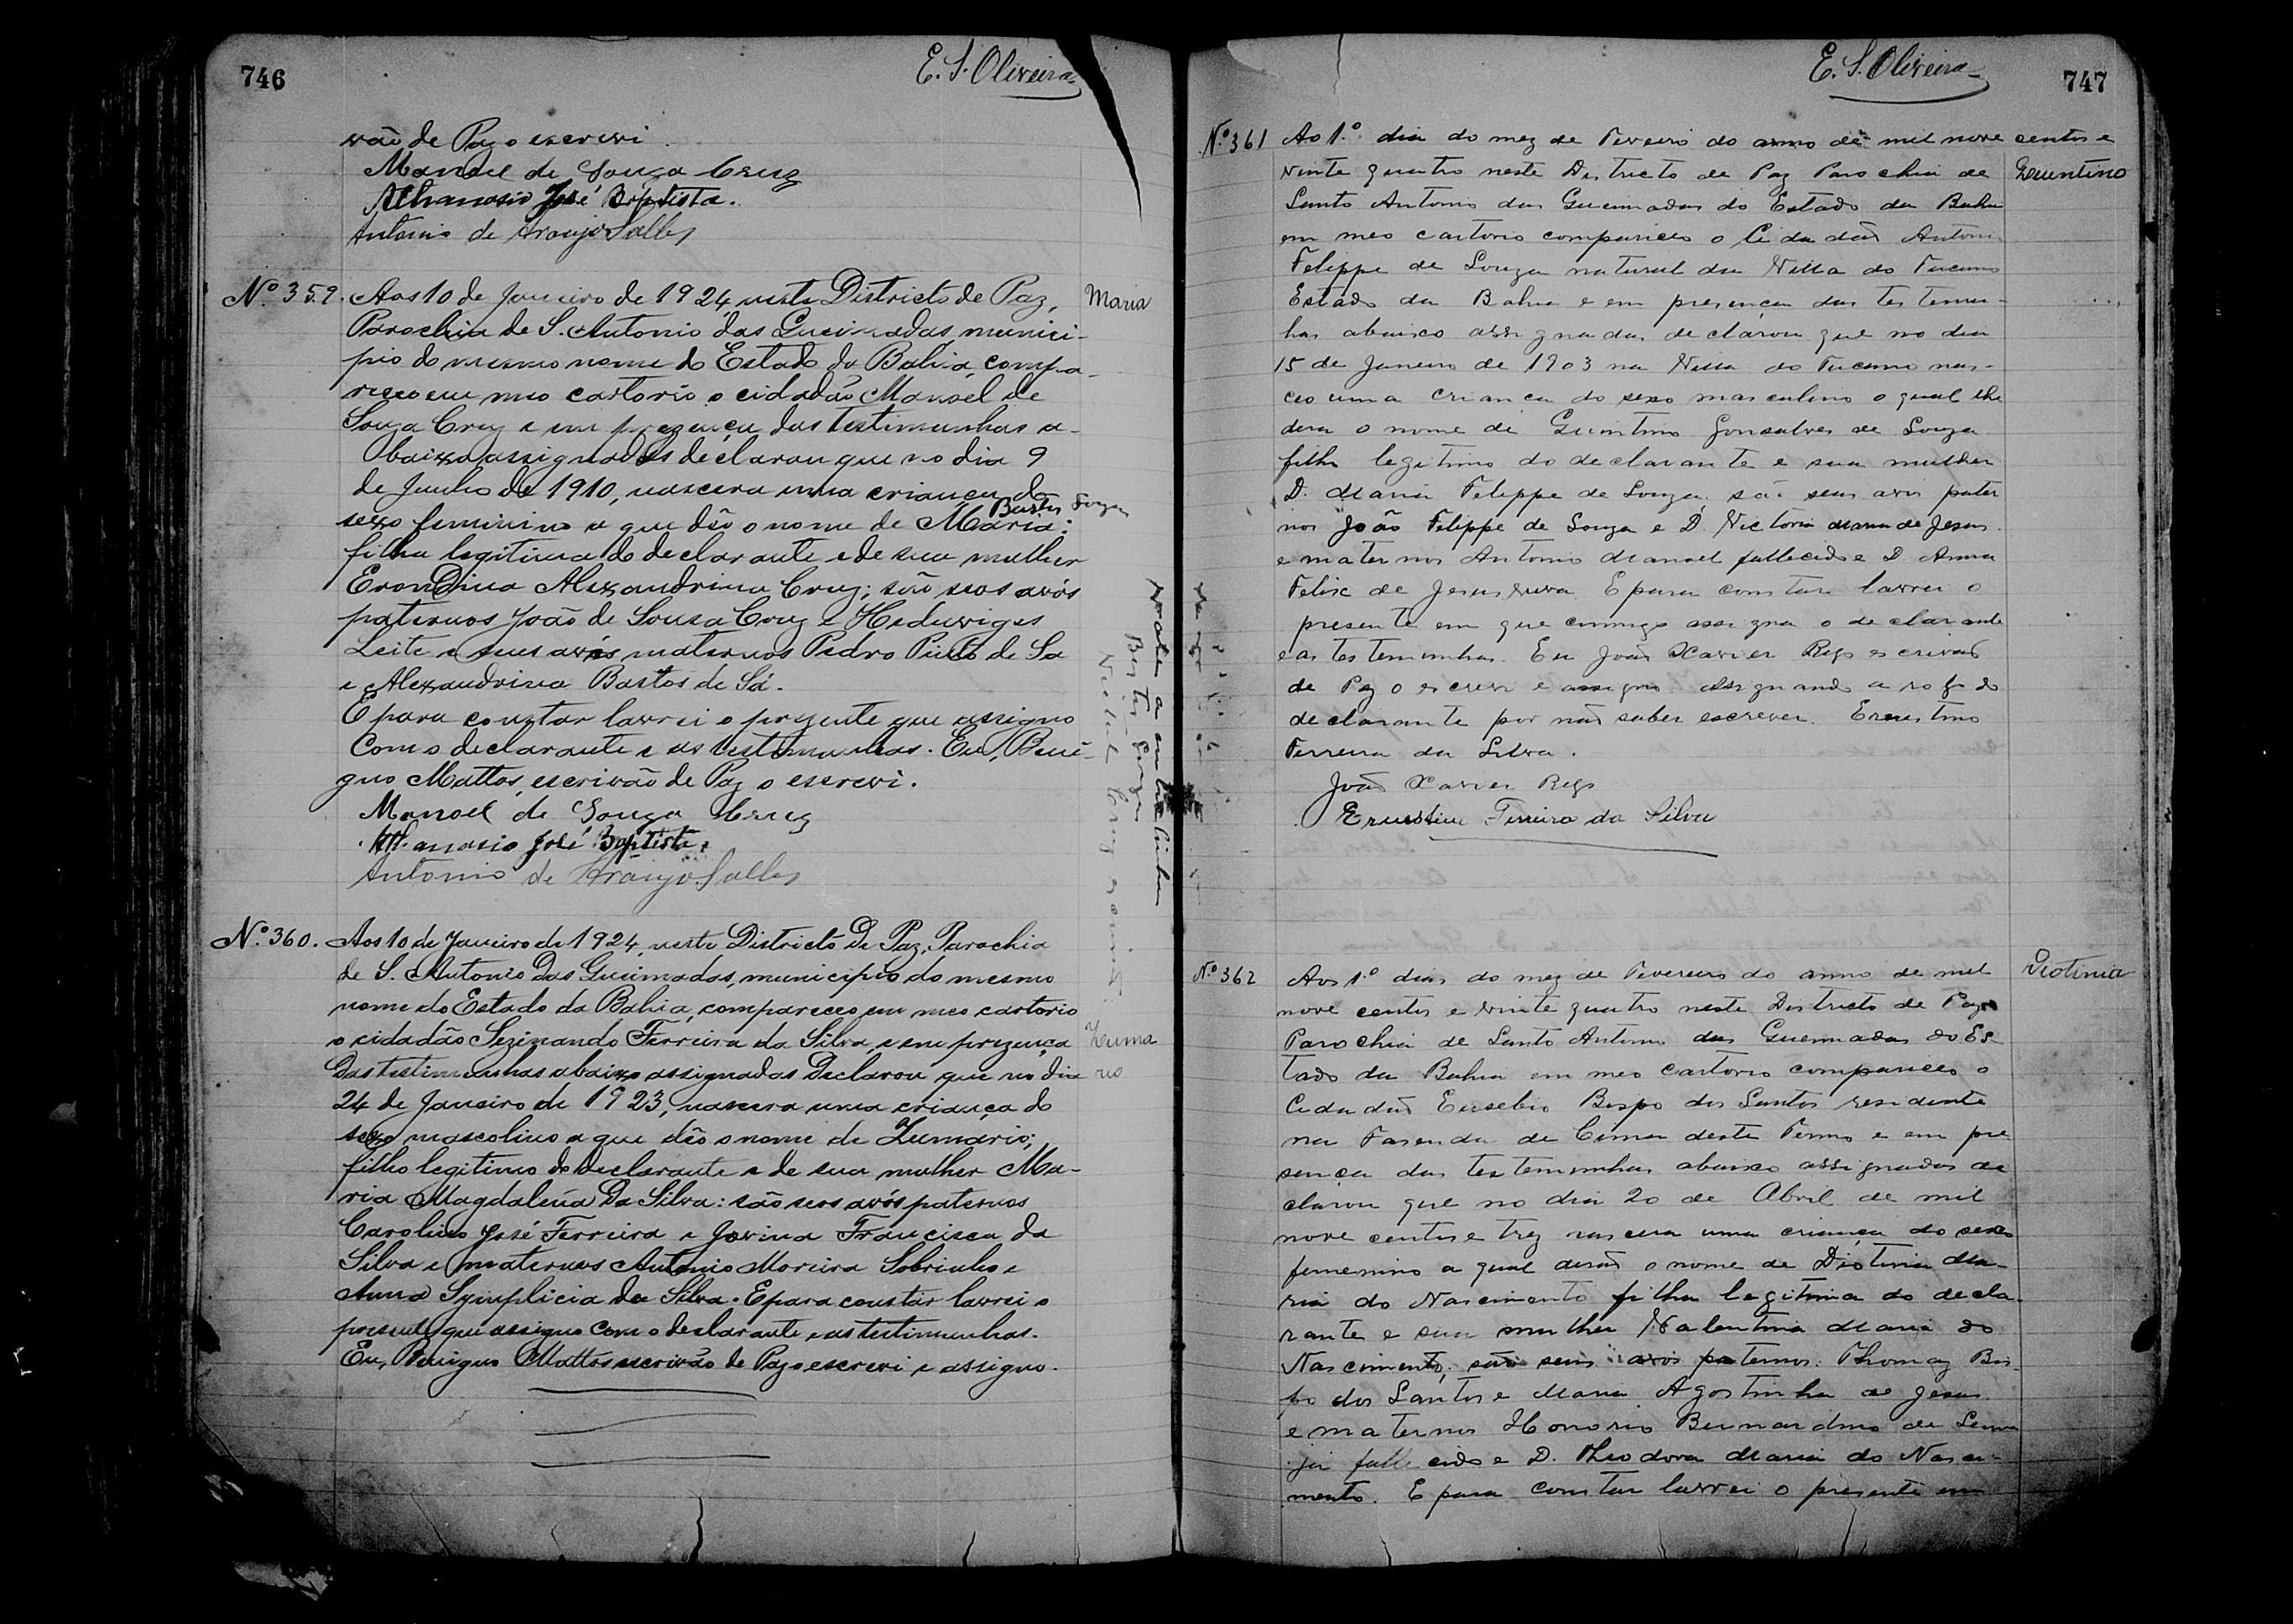 746
E. S. Oliveira
vão de Paz o escrevi.
Manoel de Souza Cruz
Athanasio José Baptista.
Antonio de Araujo Salles
Nº 359. Aos 10 de Janeiro de 1924, neste Districto de Paz,
Maria
Parochia de S. Antonio das Queimadas, munici-
pio do mesmo nome do Estado da Bahia, compa-
receo em meo cartorio o cidadão Manoel de
Souza Cruz e em prezença das testimunhas a-
baixo assignadas declarou que no dia 9
de Junho de 1910, nascera uma criança do
Bastos Souza
sexo feminino a que dão o nome de Maria:
filha legitima do declarante e de sua mulher
Erondina Alexandrina Cruz; são seos avós
paternos João de Souza Cruz e Heduviges
Leite e seus avós maternos Pedro Pinto de Sa
e Alexandrina Bastos de Sá.
E para constar lavrei o prezente que assigno
com o declarante e as testimunhas. Eu, Beni-
gno Mattos, escrivão de Paz o escrevi.
Manoel de Souza Cruz
Athanasio José Baptista.
Antonio de Araujo Salles
Nº 360. Aos 10 de Janeiro de 1924, neste Districto de Paz, Parochia
de S. Antonio das Queimadas, municipio do mesmo
nome do Estado da Bahia, compareceo em meo cartorio
o cidadão Sezinando Ferreira da Silva, e em prezença
Zuma
das testimunhas abaixo assignadas declarou que no dia
rio
24 de Janeiro de 1923, nascera uma criança do
sexo mascolino a que dão o nome de Zumário;
filho legitimo do declarante e de sua mulher Ma-
ria Magdalena da Silva: são seos avós paternos
Carolino José Ferreira e Jovina Francisca da
Silva e maternos Antonio Moreira Sobrinho e
Anna Symplicia da Silva. E para constar lavrei o
prezente que assigno com o declarante e as testimunhas.
Eu, Benigno Mattos escrivão de Paz o escrevi e assigno.
E. S. Oliveira
747
Nº 361 Ao 1º dia do mez de Fevereiro do anno de mil nove centos e
vinte quatro neste Districto de Paz Parochia de
Quintino
Santo Antonio das Queimadas do Estado da Bahia
em meo cartorio compareceo o Cidadão Antonio
Felippe de Souza natural da Villa do Tucano
Estado da Bahia e em presenca das testemu-
has abaixo assignadas declarou que no dia
15 de Janeiro de 1903 na Villa do Tucano nas-
ceo uma Crianca do sexo masculino o qual lhe
dera o nome de Quintino Gonsalves de Souza
filho legitimo do declarante e sua mulher
D. Maria Felippe de Souza, são seus avos pater
nos João Felippe de Souza e D. Victoria Maria de Jesus.
e maternos Antonio Manoel fallecido e D. Anna
Felix de Jesus viuva E para constar lavrei o
presente em que commigo assigna o declarante
e as testemunhas. Eu João Xavier Rego escrivão
de Paz o escrevi e assigno. Assignando a rogo do
declarante por não saber escrever. Ernestino
Ferreira da Silva.
João Xavier Rego
Ernestino Ferreira da Silva
Nº 362 Aos 1º dias do mez de Fevereiro do anno de mil
Diotinia
nove centos e vinte quatro neste Districto de Paz
Parochia de Santo Antonio das Queimadas do Es-
tado da Bahia em meo Cartorio compareceo o
Cidadão Eusebio Bispo dos Santos residente
na Fasenda de Cima deste Termo e em pre
sença das testemunhas abaixo assignadas de
clarou que no dia 20 de Abril de mil
nove centos e trez nascera uma criança do sexo
femenino a qual derão o nome de Diotinia Ma-
ria do Nascimento filha legitima do decla-
rante e sua mulher Valentina Maria do
Nascimento, são seus avos paternos: Thomaz Bis-
po dos Santos e Maria Agostinha de Jesus
e maternos Honorio Bernardino de Senna
já fallecido e D. Theodora Maria do Nasci-
mento. E para constar lavrei o presente em